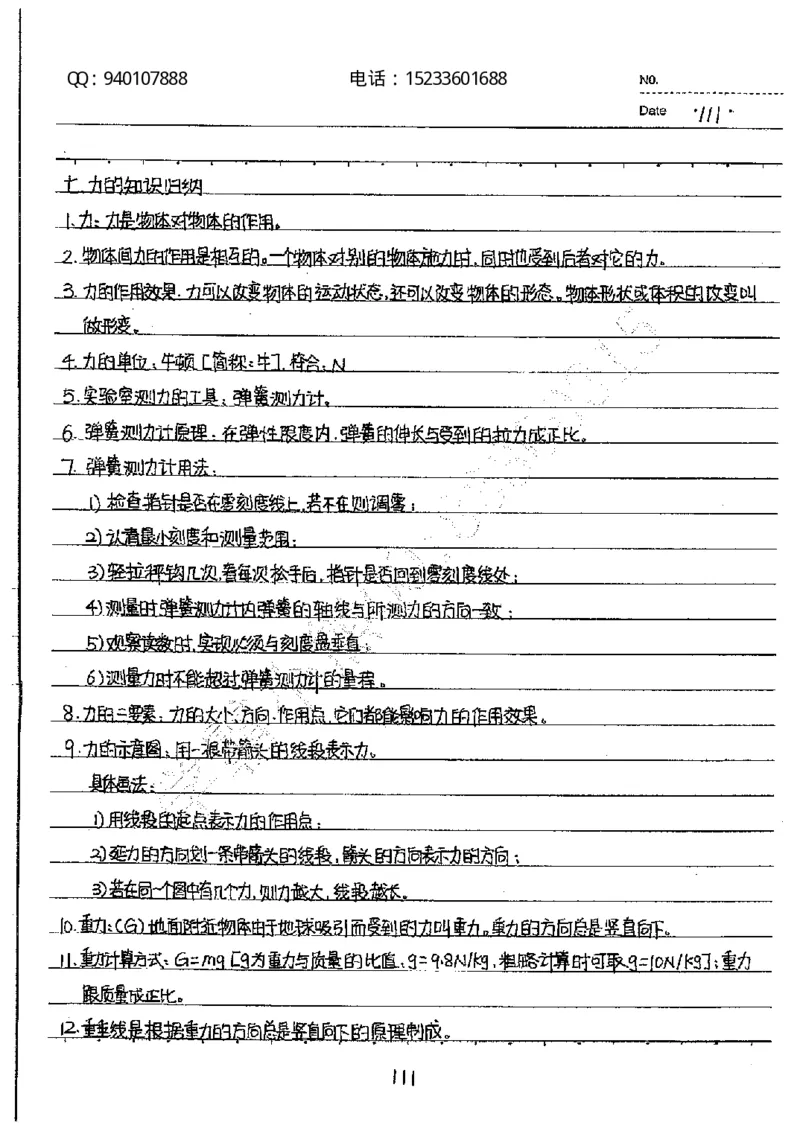 QQ：940107888 电话：15233601688 NO.
Date ·111·
七.力的知识归纳
1.力:力是物体对物体的作用。
2.物体间力的作用是相互的。一个物体对别的物体施力时,同时也受到后者对它的力。
3.力的作用效果.力可以改变物体的运动状态,还可以改变物体的形态。物体形状或体积的改变叫
做形变。
4.力的单位:牛顿[简称:牛].符合:N
5.实验室测力的工具:弹簧测力计。
6.弹簧测力计原理:在弹性限度内.弹簧的伸长与受到的拉力成正比。
7.弹簧测力计用法:
1)检查指针是否在零刻度线上,若不在则调零;
2)认清最小刻度和测量范围;
3)轻拉秤钩几次,看每次松手后,指针是否回到零刻度线处;
4)测量时弹簧测力计内弹簧的轴线与所测力的方向一致;
5)观察读数时,实现必须与刻度盘垂直;
6)测量力时不能超过弹簧测力计的量程。
8.力的三要素:力的大小、方向.作用点,它们都能影响力的作用效果。
9.力的示意图:用一根带箭头的线段表示力。
具体画法:
1)用线段的起点表示力的作用点;
2)延力的方向划一条带箭头的线段,箭头的方向表示力的方向;
3)若在同一个图中有几个力,则力越大,线段越长。
10.重力:(G)地面附近物体由于地球吸引而受到的力叫重力。重力的方向总是竖直向下。
11.重力计算方式:G=mg[g为重力与质量的比值,g=9.8N/kg,粗略计算时可取g=10N/kg];重力
跟质量成正比。
12.重垂线是根据重力的方向总是竖直向下的原理制成。
111